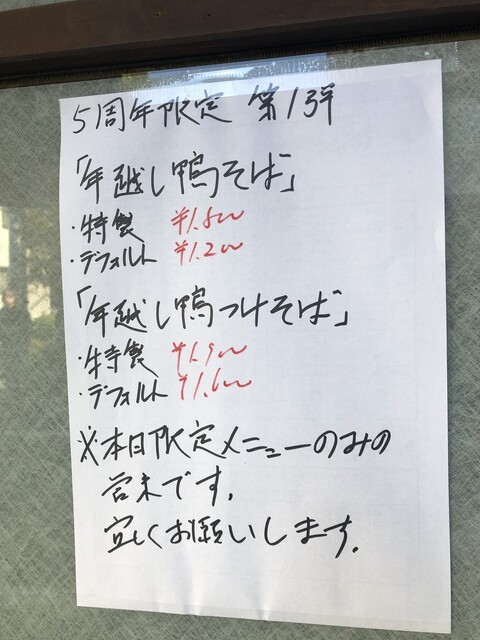 5周年限定 第1弾
「年越し鴨そば」
・特製 ¥1.800
・デフォルト ¥1.200
「年越し鴨つけそば」
・特製 ¥1.900
・デフォルト ¥1.600
※本日限定メニューのみの
営業です。
宜しくお願いします。